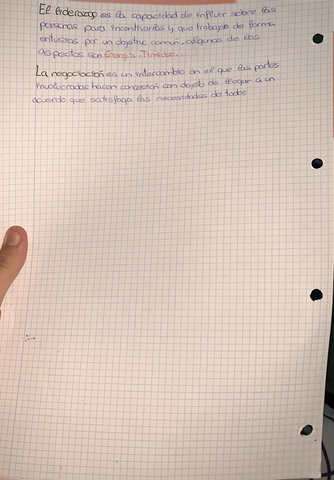 El liderazgo es la capacidad de influir sobre las
personas para incentivarlas y que trabajen de forma
entusiasta por un objetivo común. algunos de los
aspectos son Energía,
La negociación es un intercambio en el que las partes
involucradas hacen concesión con objeto de llegar a un
acuerdo que satisfaga las necesidades de todos